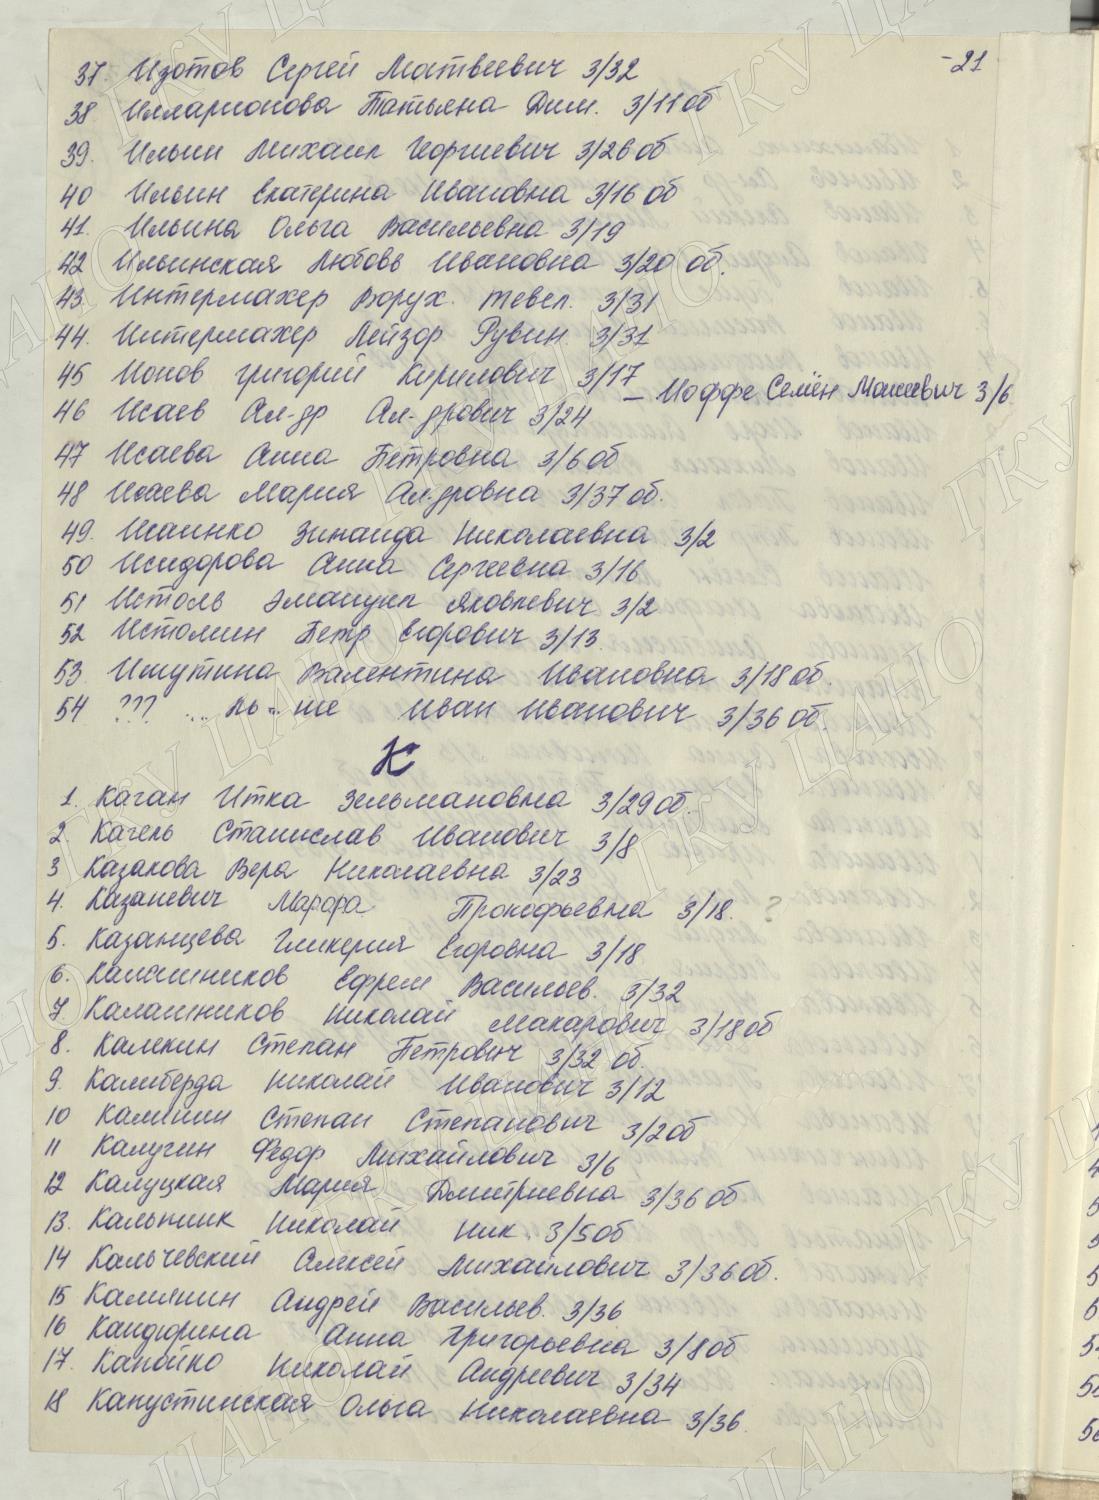 -21
37. Изотов Сергей Матвеевич 3/32
38 Илларионова Татьяна Дим. 3/11 об
39. Ильин Михаил Георгиевич 3/26 об
40 Ильин Екатерина Ивановна 3/16 об
41. Ильина Ольга Васильевна 3/19
42 Ильинская Любовь Ивановна 3/20 об.
43. Интермахер Ворух. Тевел. 3/31
44. Интермахер Лейзор Рувин. 3/31
45 Ионов Григорий Кирилович 3/17
– Иоффе Семён Моисеевич 3/6
46 Исаев Ал-др Ал-дрович 3/24
47 Исаева Анна Петровна 3/6 об
48 Исаева Мария Ал-дровна 3/37 об.
49. Исаинко Зинаида Николаевна 3/2
50 Исидорова Анна Сергеевна 3/16
51 Истоль Эмануил Яковлевич 3/2
52 Истомин Петр Егорович 3/13.
53. Ишутина Валентина Ивановна 3/18 об.
54 ??? Иван Иванович 3/36 об.
К
1. Каган Итка Зельмановна 3/29 об.
2. Кагель Станислав Иванович 3/8
3 Казакова Вера Николаевна 3/23
4. Казаневич Марфа Прокофьевна 3/18. ?
5. Казанцева Гликерия Егоровна 3/18
6. Калашников Ефрем Васильев. 3/32
7. Калашников Николай Макарович 3/18 об
8. Калекин Степан Петрович 3/32 об.
9. Калиберда Николай Иванович 3/12
10 Калинин Степан Степанович 3/2 об
11 Калугин Федор Михайлович 3/6
12 Калуцкая Мария Дмитриевна 3/36 об
13. Кальник Николай Ник. 3/5 об
14 Кальчевский Алексей Михайлович 3/36 об.
15 Камянин Андрей Васильев. 3/36
16 Кандюрина Анна Григорьевна 3/8 об
17. Канайко Николай Андреевич 3/34
18 Капустинская Ольга Николаевна 3/36.